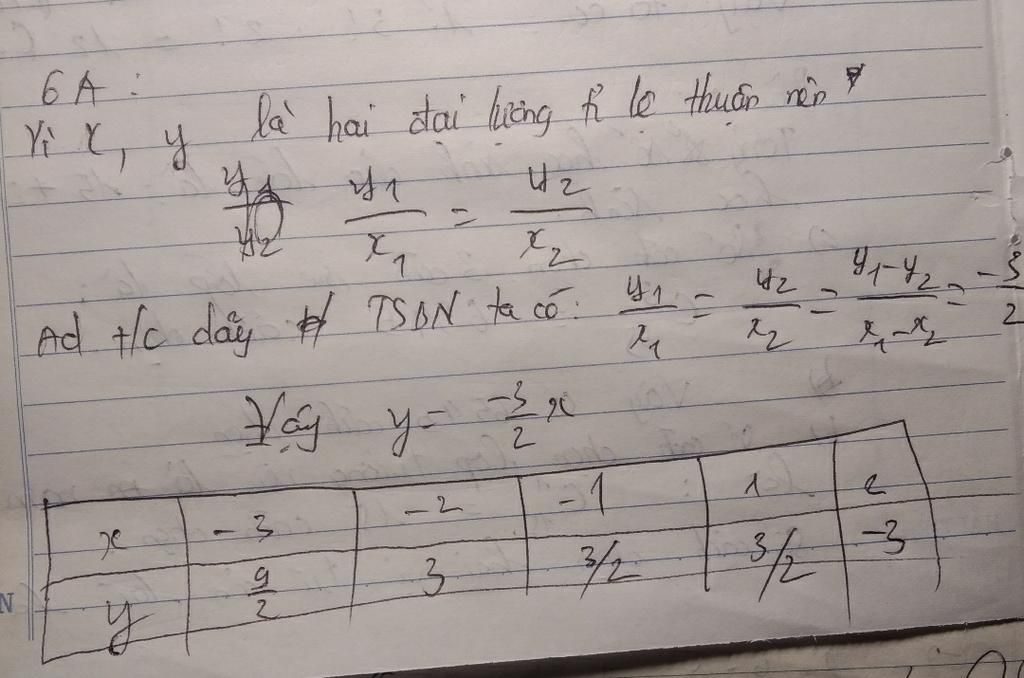 6A:
Vì x, y là hai đại lượng tỉ lệ thuận nên
y1/x1 = y2/x2
Ad t/c dãy TSBN ta có: y1/x1 = y2/x2 = y1-y2/x1-x2 = -3/2
Vậy y = -3/2 x
x -3 -2 -1 1 2
y 9/2 3 3/2 3/2 -3
N